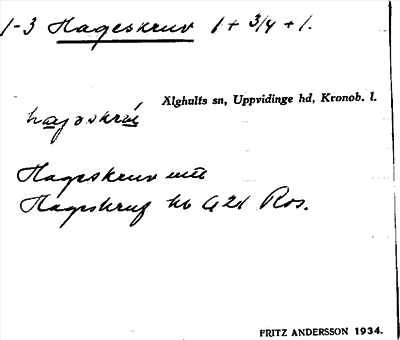 1-3 Hageskruv 1 + 3/4 + 1.
Älghults sn, Uppvidinge hd, Kronob. l.
Hageskruv
Hagskruf kb G 21 Ros.
FRITZ ANDERSSON 1934.